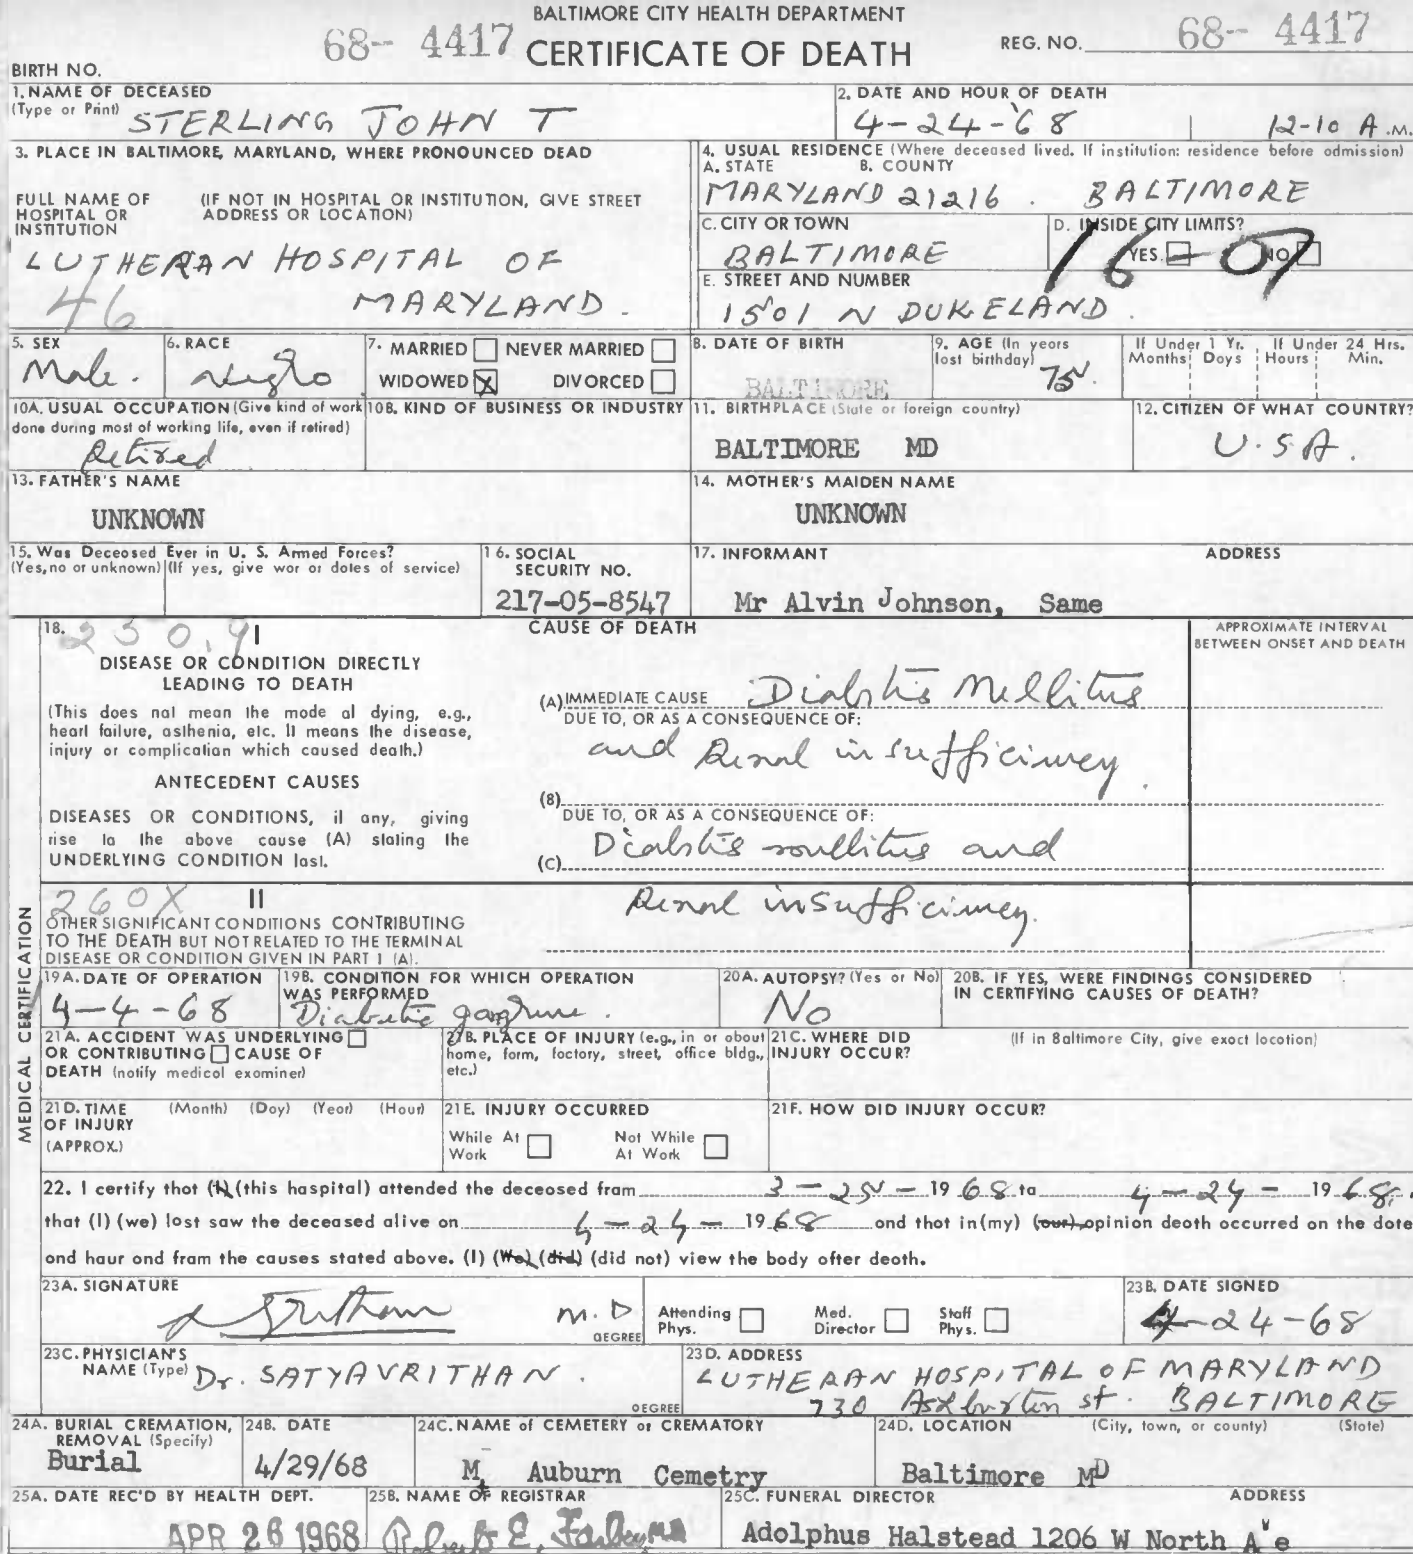 BALTIMORE CITY HEALTH DEPARTMENT
68-- 4417 CERTIFICATE OF DEATH REG. NO. 68-- 4417
BIRTH NO.
1. NAME OF DECEASED
(Type or Print) STERLING JOHN T
2. DATE AND HOUR OF DEATH
4-24-68 12-10 A.M.
3. PLACE IN BALTIMORE, MARYLAND, WHERE PRONOUNCED DEAD
FULL NAME OF HOSPITAL OR INSTITUTION (IF NOT IN HOSPITAL OR INSTITUTION, GIVE STREET ADDRESS OR LOCATION)
LUTHERAN HOSPITAL OF
46 MARYLAND.
4. USUAL RESIDENCE (Where deceased lived. If institution: residence before admission)
A. STATE B. COUNTY
MARYLAND 21216. BALTIMORE
C. CITY OR TOWN D. INSIDE CITY LIMITS?
BALTIMORE YES NO
16-07
E. STREET AND NUMBER
1501 N DUKELAND.
5. SEX 6. RACE 7. MARRIED NEVER MARRIED
Male. Negro WIDOWED X DIVORCED
8. DATE OF BIRTH 9. AGE (In years last birthday) If Under 1 Yr. If Under 24 Hrs.
BALTIMORE 75. Months Days Hours Min.
10A. USUAL OCCUPATION (Give kind of work done during most of working life, even if retired) 10B. KIND OF BUSINESS OR INDUSTRY 11. BIRTHPLACE (State or foreign country) 12. CITIZEN OF WHAT COUNTRY?
Retired BALTIMORE MD U.S.A.
13. FATHER'S NAME 14. MOTHER'S MAIDEN NAME
UNKNOWN UNKNOWN
15. Was Deceased Ever in U. S. Armed Forces?
(Yes, no or unknown) (If yes, give war or dates of service)
16. SOCIAL SECURITY NO.
217-05-8547
17. INFORMANT ADDRESS
Mr Alvin Johnson, Same
18. 250.9 I
CAUSE OF DEATH
APPROXIMATE INTERVAL BETWEEN ONSET AND DEATH
DISEASE OR CONDITION DIRECTLY
LEADING TO DEATH
(This does not mean the mode of dying, e.g.,
heart failure, asthenia, etc. It means the disease,
injury or complication which caused death.)
ANTECEDENT CAUSES
DISEASES OR CONDITIONS, if any, giving
rise to the above cause (A) stating the
UNDERLYING CONDITION last.
(A) IMMEDIATE CAUSE Diabetis Mellitus
DUE TO, OR AS A CONSEQUENCE OF:
and Renal insufficincy.
(B)
DUE TO, OR AS A CONSEQUENCE OF:
(C) Diabetis mellitus and
260X II
OTHER SIGNIFICANT CONDITIONS CONTRIBUTING
TO THE DEATH BUT NOT RELATED TO THE TERMINAL
DISEASE OR CONDITION GIVEN IN PART I (A).
Renal insufficincy.
MEDICAL CERTIFICATION
19A. DATE OF OPERATION 19B. CONDITION FOR WHICH OPERATION WAS PERFORMED 20A. AUTOPSY? (Yes or No) 20B. IF YES, WERE FINDINGS CONSIDERED IN CERTIFYING CAUSES OF DEATH?
4-4-68 Diabetic gangrene. No
21A. ACCIDENT WAS UNDERLYING
OR CONTRIBUTING CAUSE OF
DEATH (notify medical examiner)
21B. PLACE OF INJURY (e.g., in or about
home, farm, factory, street, office bldg.,
etc.)
21C. WHERE DID INJURY OCCUR? (If in Baltimore City, give exact location)
21D. TIME OF INJURY (APPROX.) (Month) (Day) (Year) (Hour)
21E. INJURY OCCURRED
While At Work Not While At Work
21F. HOW DID INJURY OCCUR?
22. I certify that (I) (this hospital) attended the deceased from 3-25-1968 to 4-24-1968,
that (I) (we) last saw the deceased alive on 4-24-1968 and that in (my) (our) opinion death occurred on the date
and hour and from the causes stated above. (I) (We) (did) (did not) view the body after death.
23A. SIGNATURE 23B. DATE SIGNED
M.D DEGREE Attending Phys. Med. Director Staff Phys. 4-24-68
23C. PHYSICIAN'S NAME (Type) Dr. SATYAVRITHAN. DEGREE
23D. ADDRESS
LUTHERAN HOSPITAL OF MARYLAND
730 Ashburton st. BALTIMORE
24A. BURIAL CREMATION, REMOVAL (Specify) 24B. DATE 24C. NAME of CEMETERY or CREMATORY 24D. LOCATION (City, town, or county) (State)
Burial 4/29/68 Mt Auburn Cemetry Baltimore MD
25A. DATE REC'D BY HEALTH DEPT. 25B. NAME OF REGISTRAR 25C. FUNERAL DIRECTOR ADDRESS
APR 26 1968 Robert E. Farber, MD Adolphus Halstead 1206 W North Ave